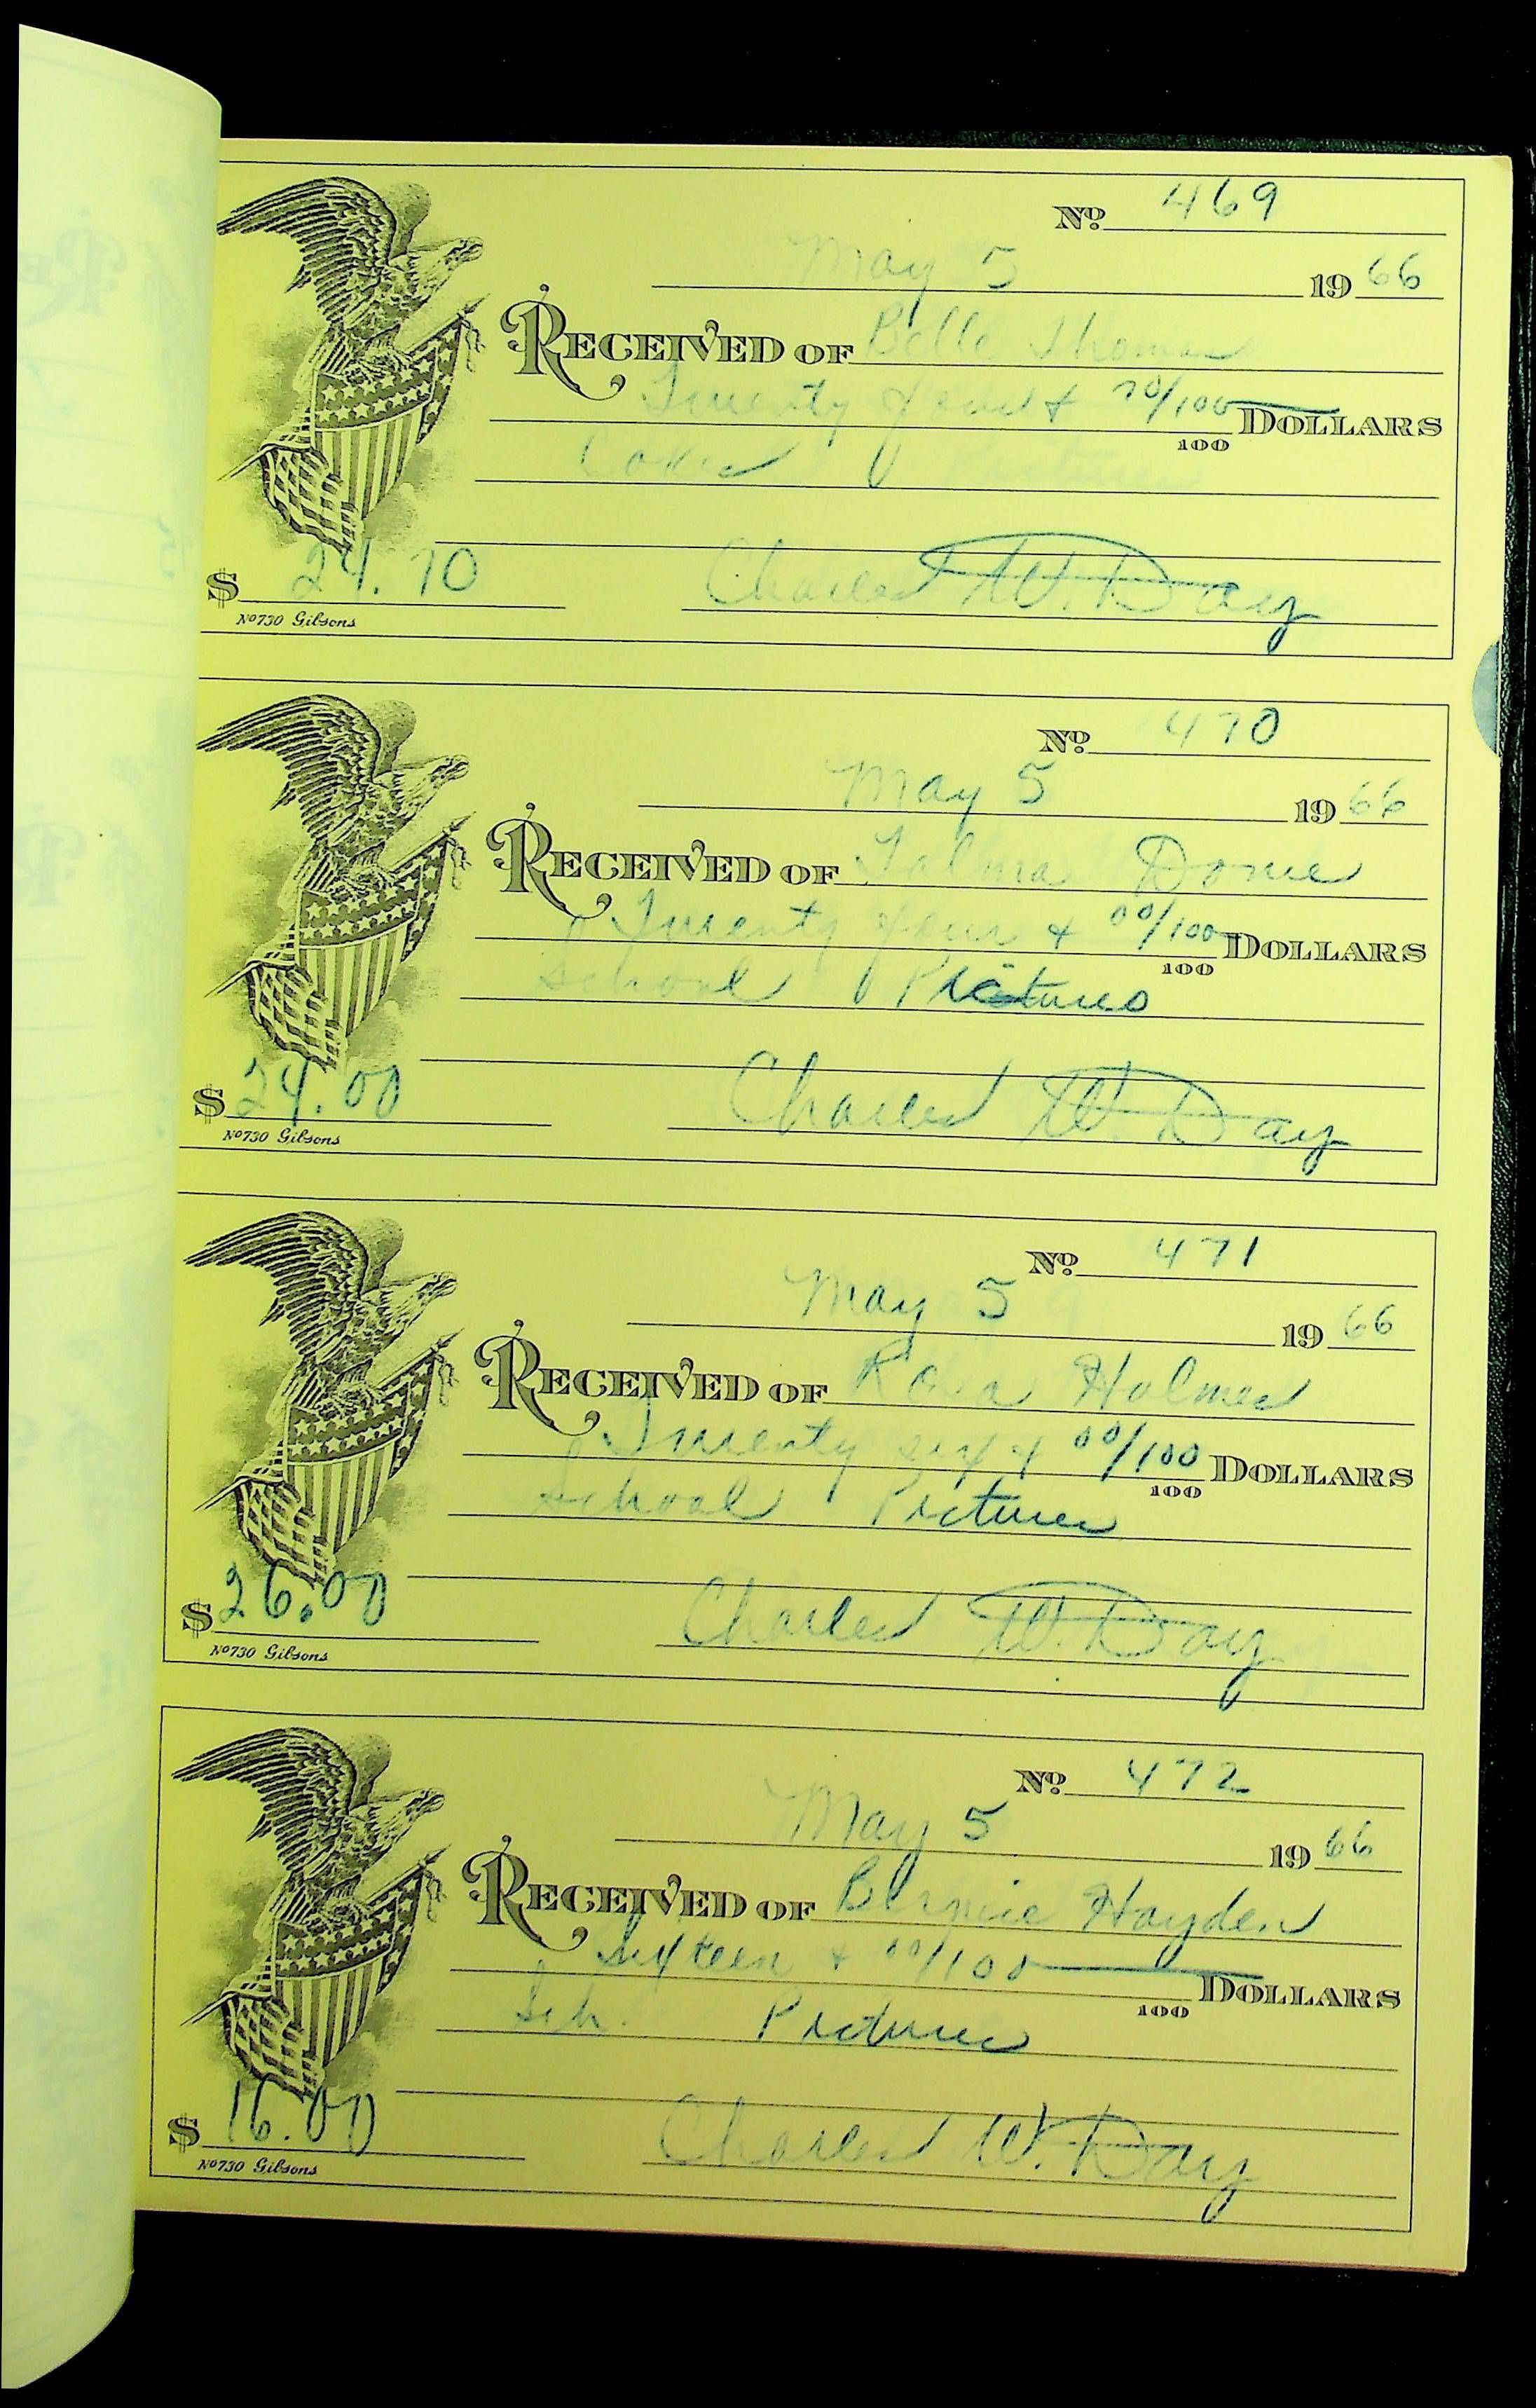 No. 469
May 5 1966
RECEIVED OF Belle Thomas
Twenty four & 70/100 DOLLARS
100
$ 24.70 Charles W. Day
No 730 Gibsons
No. 470
May 5 1966
RECEIVED OF Talma
Twenty four & 00/100 DOLLARS
100
School Pictures
$ 24.00 Charles W. Day
No 730 Gibsons
No. 471
May 5 1966
RECEIVED OF Holmes
Twenty six & 00/100 DOLLARS
100
School Pictures
$ 26.00 Charles W. Day
No 730 Gibsons
No. 472
May 5 1966
RECEIVED OF Hayden
Sixteen & 00/100 DOLLARS
100
Sch. Pictures
$ 16.00 Charles W. Day
No 730 Gibsons